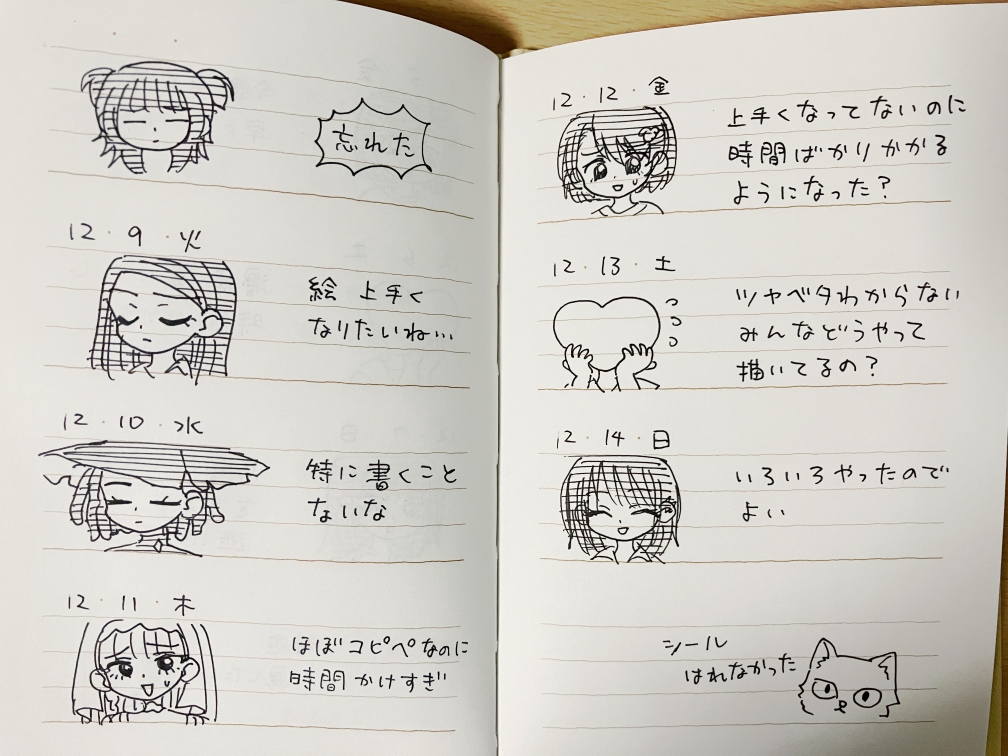 忘れた
12・9・火
絵 上手く
なりたいね…
12・10・水
特に書くこと
ないな
12・11・木
ほぼコピペなのに
時間かけすぎ
12・12・金
上手くなってないのに
時間ばかりかかる
ようになった?
12・13・土
ツヤベタわからない
みんなどうやって
描いてるの?
12・14・日
いろいろやったので
よい
シール
はれなかった